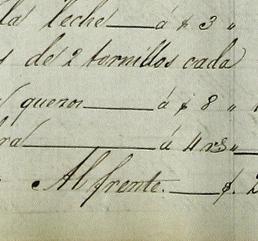 la leche ___ á $ 3 "
s de 2 tornillos cada
quesos ___ á $ 8 "
ra ___ á 4 rs "
Al frente. ___ $. 2